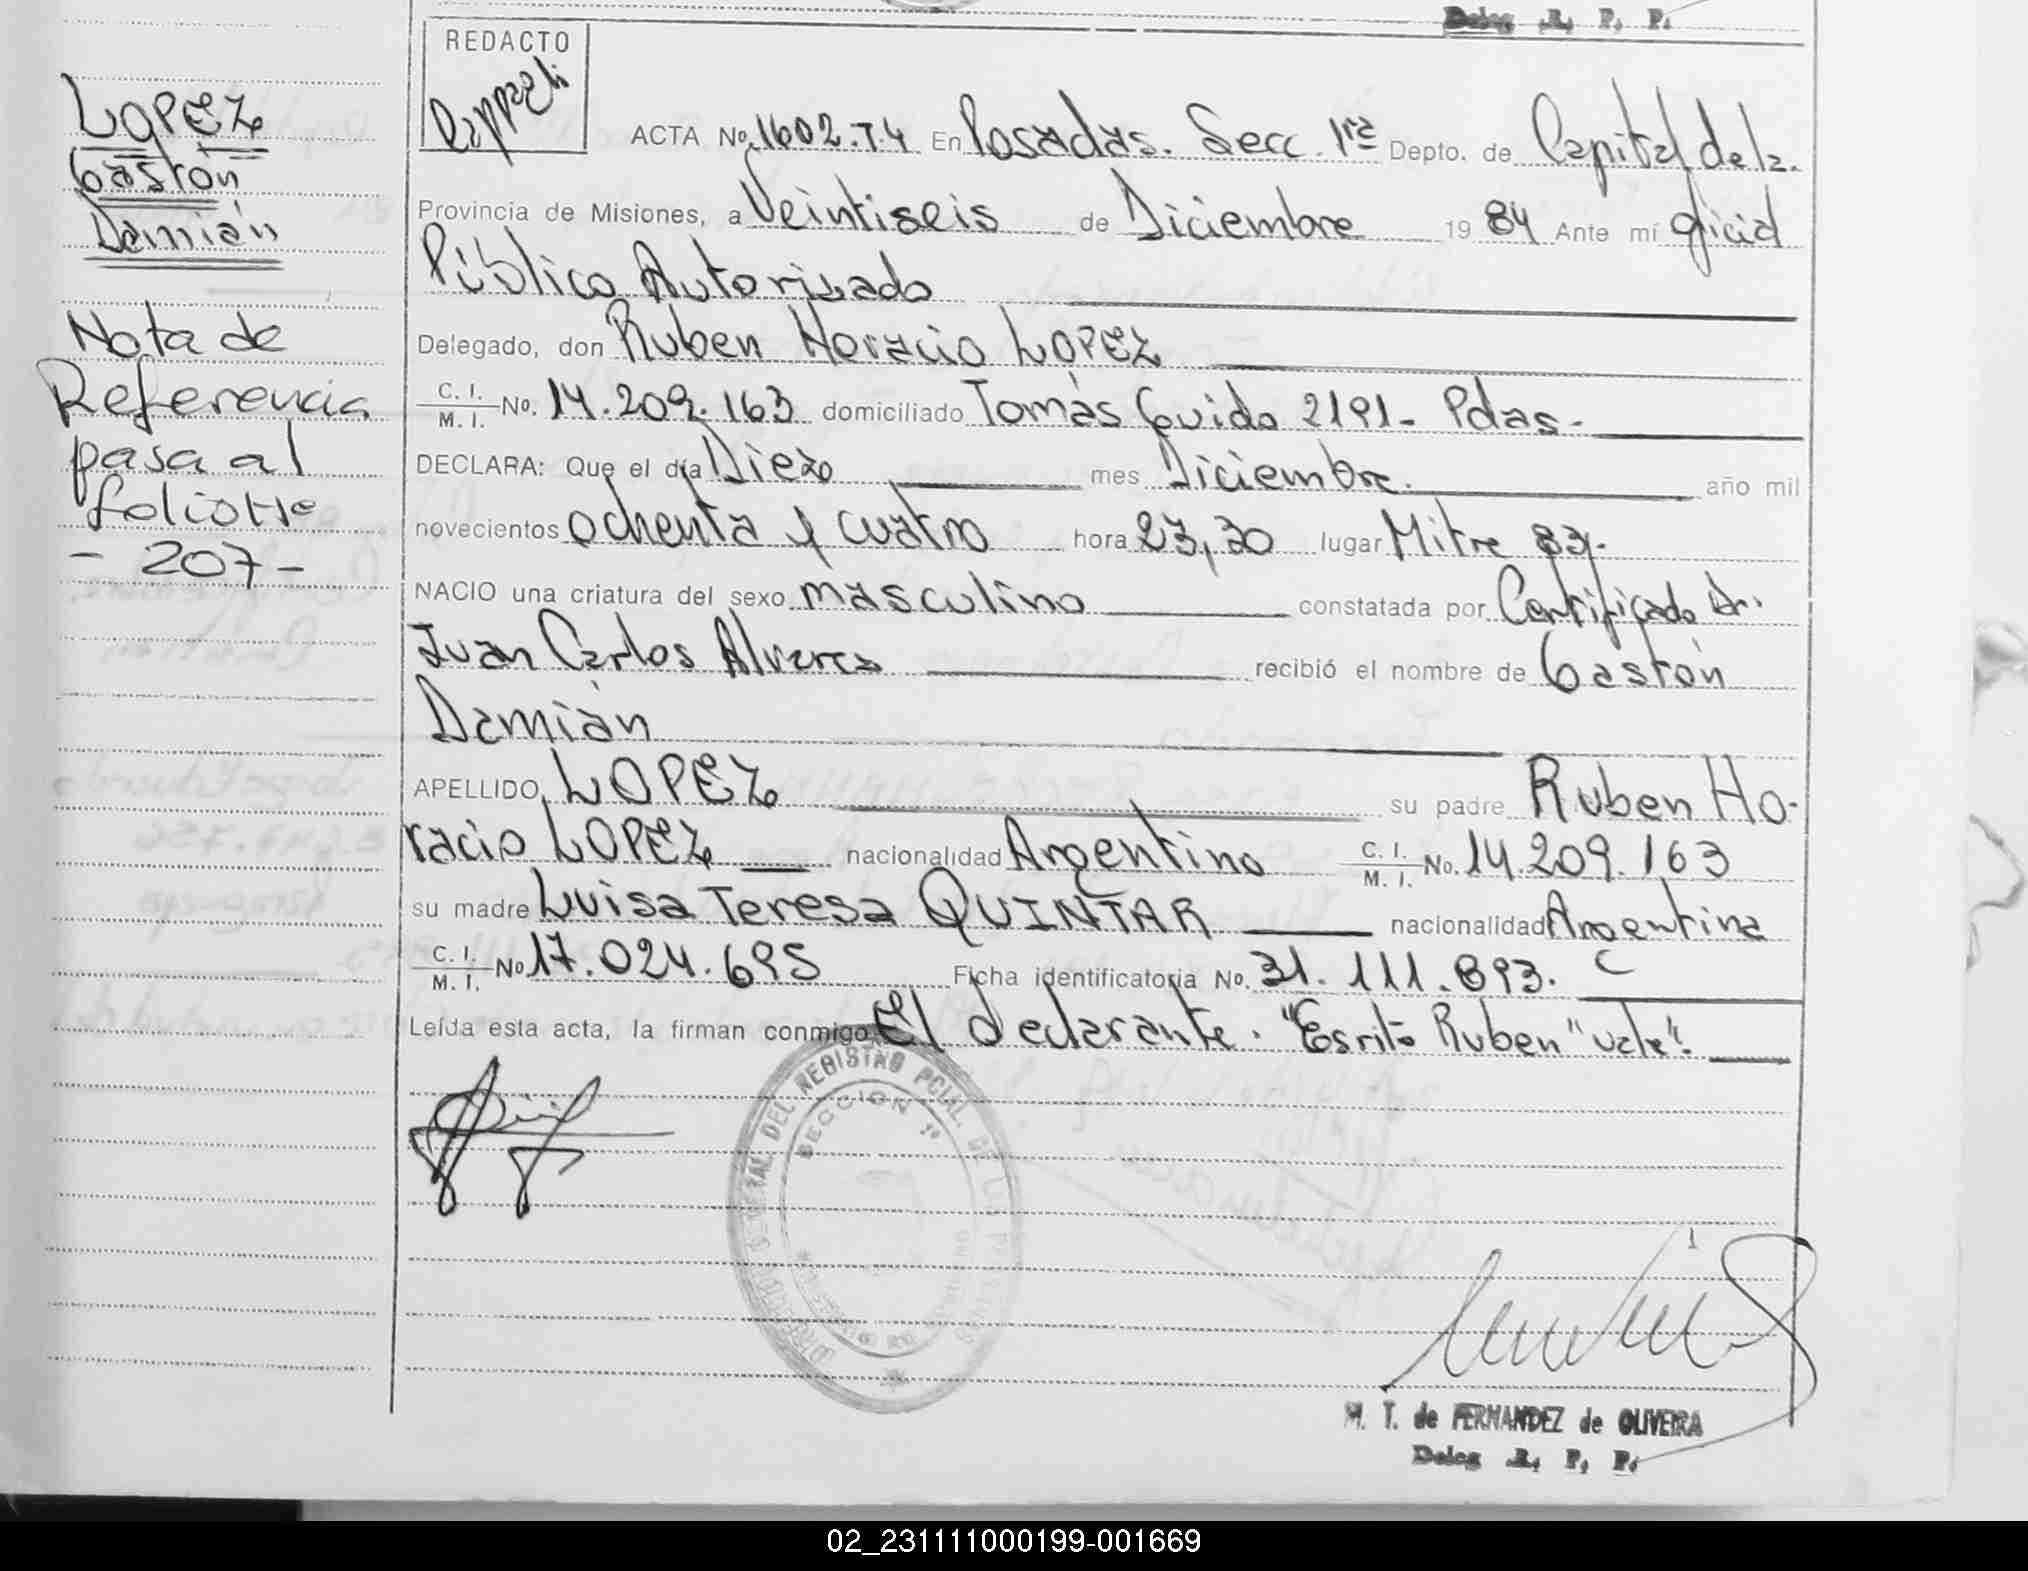 Deleg. R. P. P.
REDACTO
LOPEZ
Gastón
Damián
Nota de
Referencia
pasa al
folio Nº
- 207 -
ACTA No. 1602.T.4 En Posadas. Secc. 1ra Depto. de Capital de la.
Provincia de Misiones, a Veintiseis de Diciembre 1984 Ante mí Oficial
Público Autorizado
Delegado, don Ruben Horacio LOPEZ
C. I. M. I. No. 14.209.163 domiciliado Tomàs Guido 2191- Pdas-
DECLARA: Que el día Diez mes Diciembre. año mil
novecientos ochenta y cuatro hora 23,30 lugar Mitre 83.
NACIO una criatura del sexo masculino constatada por Certificado Dr.
Juan Carlos Alvarez recibió el nombre de Gastón
Damián
APELLIDO LOPEZ su padre Ruben Ho-
racio LOPEZ nacionalidad Argentino C. I. M. I. No. 14.209.163
su madre Luisa Teresa QUINTAR nacionalidad Argentina
C. I. M. I. No 17.024.695 Ficha identificatoria No. 31.111.893. C
Leída esta acta, la firman conmigo El declarante. "Esrito Ruben" vale".
DIRECCION GENERAL DEL REGISTRO PCIAL. DE LAS PERSONAS
SECCION 1º
M. T. de FERNANDEZ de OLIVEIRA
Deleg. R. P. P.
02_231111000199-001669